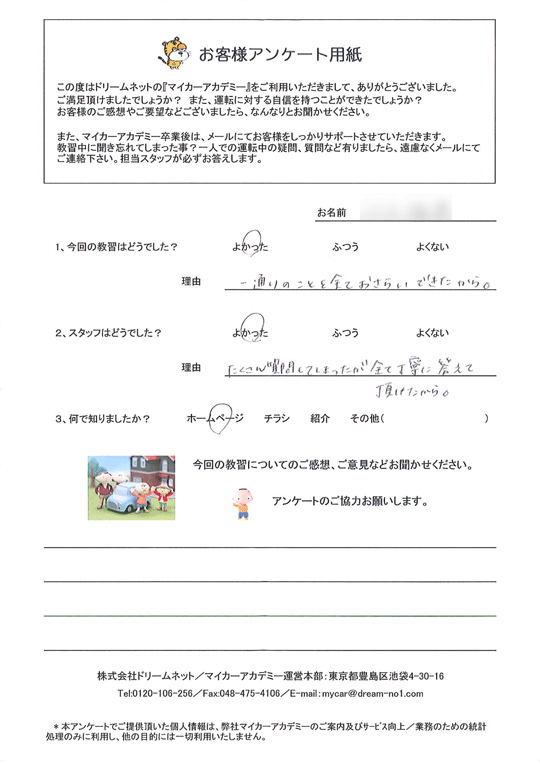 お客様アンケート用紙
この度はドリームネットの『マイカーアカデミー』をご利用いただきまして、ありがとうございました。
ご満足頂けましたでしょうか？ また、運転に対する自信を持つことができたでしょうか？
お客様のご感想やご要望などございましたら、なんなりとお聞かせください。
また、マイカーアカデミー卒業後は、メールにてお客様をしっかりサポートさせていただきます。
教習中に聞き忘れてしまった事？一人での運転中の疑問、質問など有りましたら、遠慮なくメールにて
ご連絡下さい。担当スタッフが必ずお答えします。
お名前
1、今回の教習はどうでした？ よかった ふつう よくない
理由 一通りのことを全ておさらいできたから。
2、スタッフはどうでした？ よかった ふつう よくない
理由 たくさん質問してしまったが全て丁寧に答えて
頂けたから。
3、何で知りましたか？ ホームページ チラシ 紹介 その他( )
今回の教習についてのご感想、ご意見などお聞かせください。
アンケートのご協力お願いします。
株式会社ドリームネット／マイカーアカデミー運営本部：東京都豊島区池袋4-30-16
Tel:0120-106-256／Fax:048-475-4106／E-mail:mycar@dream-no1.com
＊本アンケートでご提供頂いた個人情報は、弊社マイカーアカデミーのご案内及びサービス向上／業務のための統計
処理のみに利用し、他の目的には一切利用いたしません。